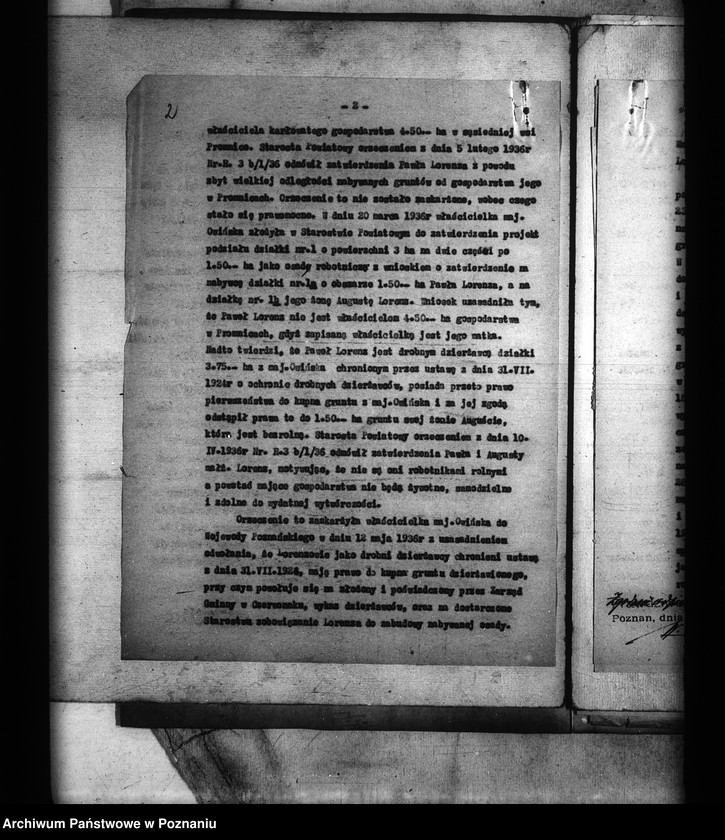 2
- 2 -
właściciela karłowatego gospodarstwa 4.50.- ha w sąsiedniej wsi
Promnice. Starosta Powiatowy orzeczeniem z dnia 5 lutego 1936r
Nr.R. 3 b/1/36 odmówił zatwierdzenia Pawła Lorenza z powodu
zbyt wielkiej odległości nabywanych gruntów od gospodarstwa jego
w Promnicach. Orzeczenie to nie zostało zaskarżone, wobec czego
stało się prawomocne. W dniu 20 marca 1936r właścicielka maj.
Owińska złożyła w Starostwie Powiatowym do zatwierdzenia projekt
podziału działki nr.1 o powierzchni 3 ha na dwie części po
1.50.- ha jako osady robotnicze z wnioskiem o zatwierdzenie na
nabywcę działki nr.1a o obszarze 1.50.- ha Pawła Lorenza, a na
działkę nr. 1b jego żonę Augustę Lorenz. Wniosek uzasadniła tym,
że Paweł Lorenz nie jest właścicielem 4.50.- ha gospodarstwa
w Promnicach, gdyż zapisaną właścicielką jest jego matka.
Nadto twierdzi, że Paweł Lorenz jest drobnym dzierżawcą działki
3.75.- ha z maj.Owińska chronionym przez ustawę z dnia 31.VII.
1924r o ochronie drobnych dzierżawców, posiada przeto prawo
pierwszeństwa do kupna gruntu z maj.Owińska i za jej zgodą
odstąpił prawa te do 1.50.- ha gruntu swej żonie Auguście,
która jest bezrolną. Starosta Powiatowy orzeczeniem z dnia 10.
IV.1936r Nr. R.3 b/1/36 odmówił zatwierdzenia Pawła i Augusty
małż. Lorenz, motywując, że nie są oni robotnikami rolnymi
a powstać mające gospodarstwa nie będą żywotne, samodzielne
i zdolne do wydatnej wytwórczości.
Orzeczenie to zaskarżyła właścicielka maj.Owińska do
Wojewody Poznańskiego w dniu 12 maja 1936r z uzasadnieniem
odwołania, że Lorenzowie jako drobni dzierżawcy chronieni ustawą
z dnia 31.VII.1924, mają prawo do kupna gruntu dzierżawionego,
przy czym powołuje się na złożony i poświadczony przez Zarząd
Gminy w Czerwonaku, wykaz dzierżawców, oraz na dostarczone
Starostwu zobowiązanie Lorenza do zabudowy nabywanej osady.
Poznan, dnia
Archiwum Państwowe w Poznaniu